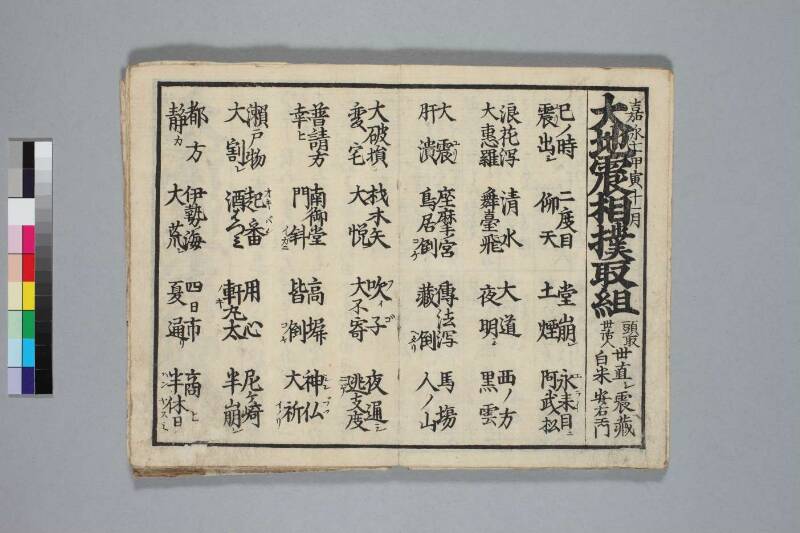 嘉永七甲寅十一月
大地震相撲取組
頭取 世直シ震藏
世話人 白米安右衛門
巳ノ時 二度目 堂崩シ 永来目ニ
震出シ 仰天 土煙 阿武松
浪花潟 清水 大道 西ノ方
大惠羅 舞臺飛 夜明シ 黒雲
大震 座摩宮 傳法潟 馬場
肝潰 鳥居倒 藏倒 人ノ山
大破損 材木矢 吹子 夜通シ
変宅 大悦 大不寄 迯支度
普請方 南御堂 高塀 神仏
幸ヒ 門斜 皆倒 大祈
瀬戸物 起番 用心 尼ヶ崎
大割レ 酒 軒 太 半崩レ
都方 伊勢ノ海 四日市 商ヒ
静カ 大荒レ 夏通リ 半休日